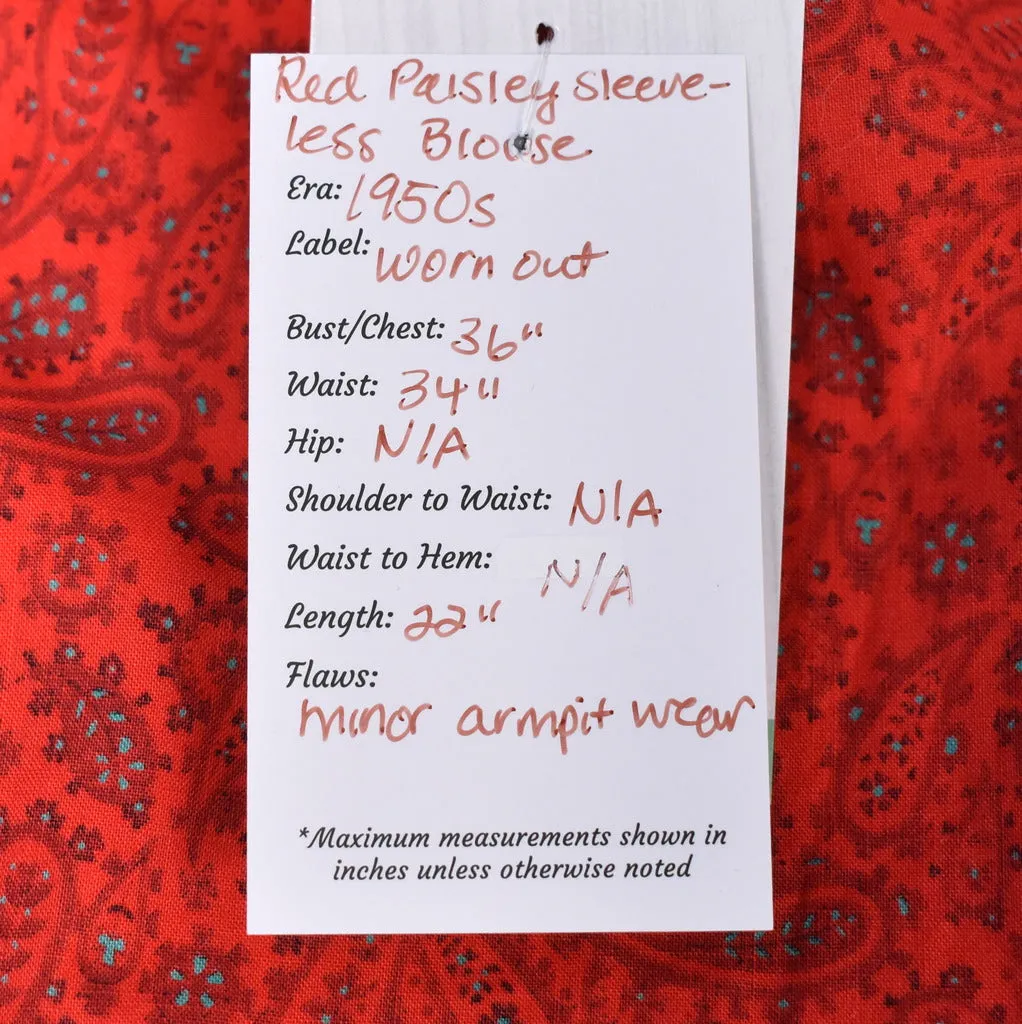 Red Paisley Sleeve-
less Blouse
Era: 1950s
Label: worn out
Bust/Chest: 36"
Waist: 34"
Hip: N/A
Shoulder to Waist: N/A
Waist to Hem: N/A
Length: 22"
Flaws:
minor armpit wear
*Maximum measurements shown in
inches unless otherwise noted